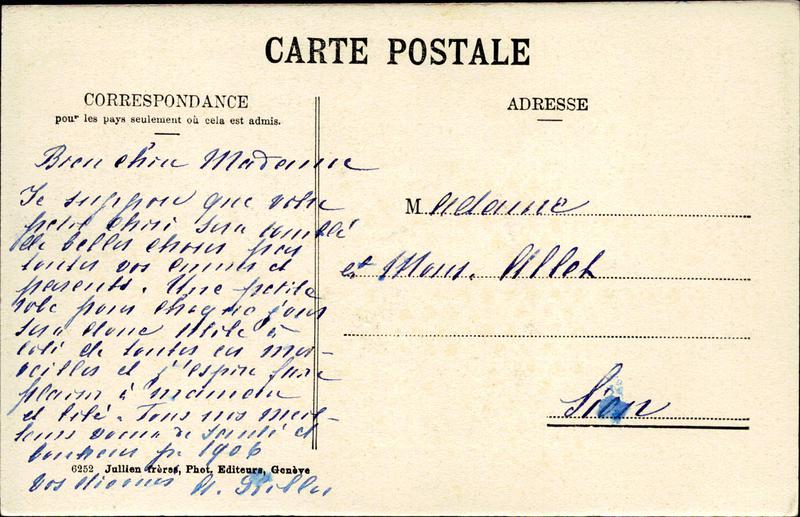 CARTE POSTALE
CORRESPONDANCE
pour les pays seulement où cela est admis.
ADRESSE
Bien chère Madame
Je suppose que votre
petit chéri sera comblé
de belles choses par
toutes vos amies et
parents. Une petite
robe pour chaque jour
sera donc utile à
côté de toutes ces mer-
veilles et j'espère faire
plaisir à maman
et bébé. Tous nos meil-
leurs vœux de santé et
bonheur pr 1906
6252 Jullien frères, Phot. Editeurs, Genève
vos
Madame
et Mons. Allet
Sion